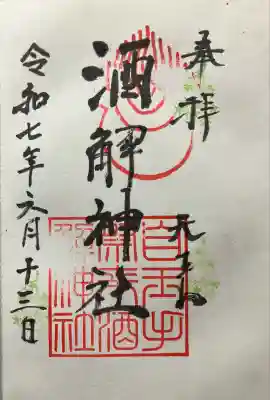 奉拝
天王山
酒解神社
自玉手
祭來酒
解神社
令和七年六月十三日